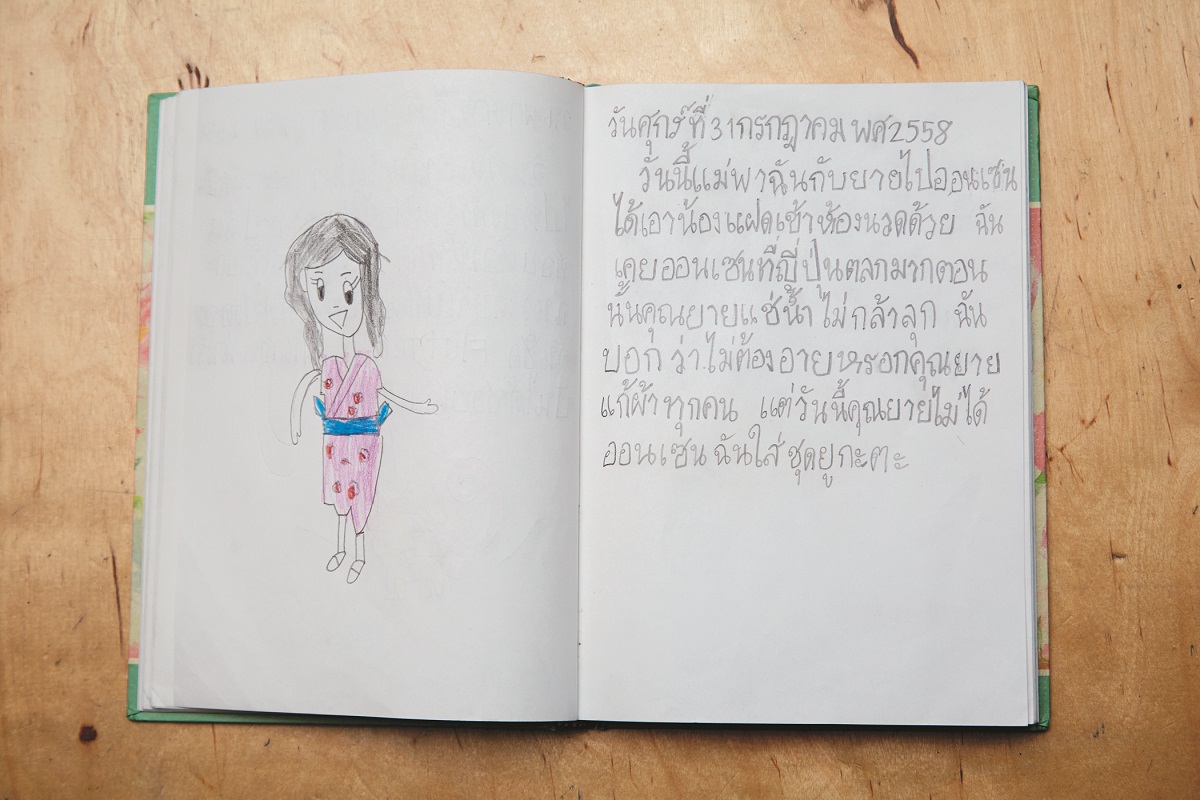 วันศุกร์ที่ 31 กรกฎาคม พศ 2558
วันนี้แม่พาฉันกับยายไปออนเซ่น
ได้เอาน้องแฝดเข้าห้องนวดด้วย ฉัน
เคยออนเซนที่ญี่ปุ่นตลกมากตอน
นั้นคุณยายแช่น้ำ ไม่กล้าลุก ฉัน
บอก ว่า ไม่ต้อง อายหรอกคุณยาย
แก้ผ้าทุกคน แต่วันนี้คุณยายไม่ได้
ออนเซน ฉันใส่ ชุดยูกะตะ